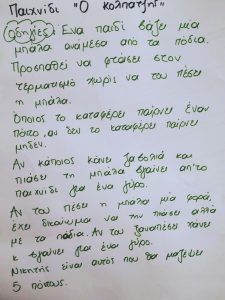 Παιχνίδι "Ο κολπατζής"
Οδηγίες: Ένα παιδί βάζει μία
μπάλα ανάμεσα από τα πόδια.
Προσπαθεί να φτάσει στον
τερματισμό χωρίς να του πέσει
η μπάλα.
Όποιος το καταφέρει παίρνει έναν
πόντο, αν δεν το καταφέρει παίρνει
μηδέν.
Αν κάποιος κάνει ζαβολιά και
πιάσει τη μπάλα βγαίνει απ'το
παιχνίδι για ένα γύρο.
Αν του πέσει η μπάλα μία φορά,
έχει δικαίωμα να την πιάσει αλλά
με τα πόδια. Αν του ξαναπέσει χάνει
κ βγαίνει για ένα γύρο.
Νικητής είναι αυτός που θα μαζέψει
5 πόντους.